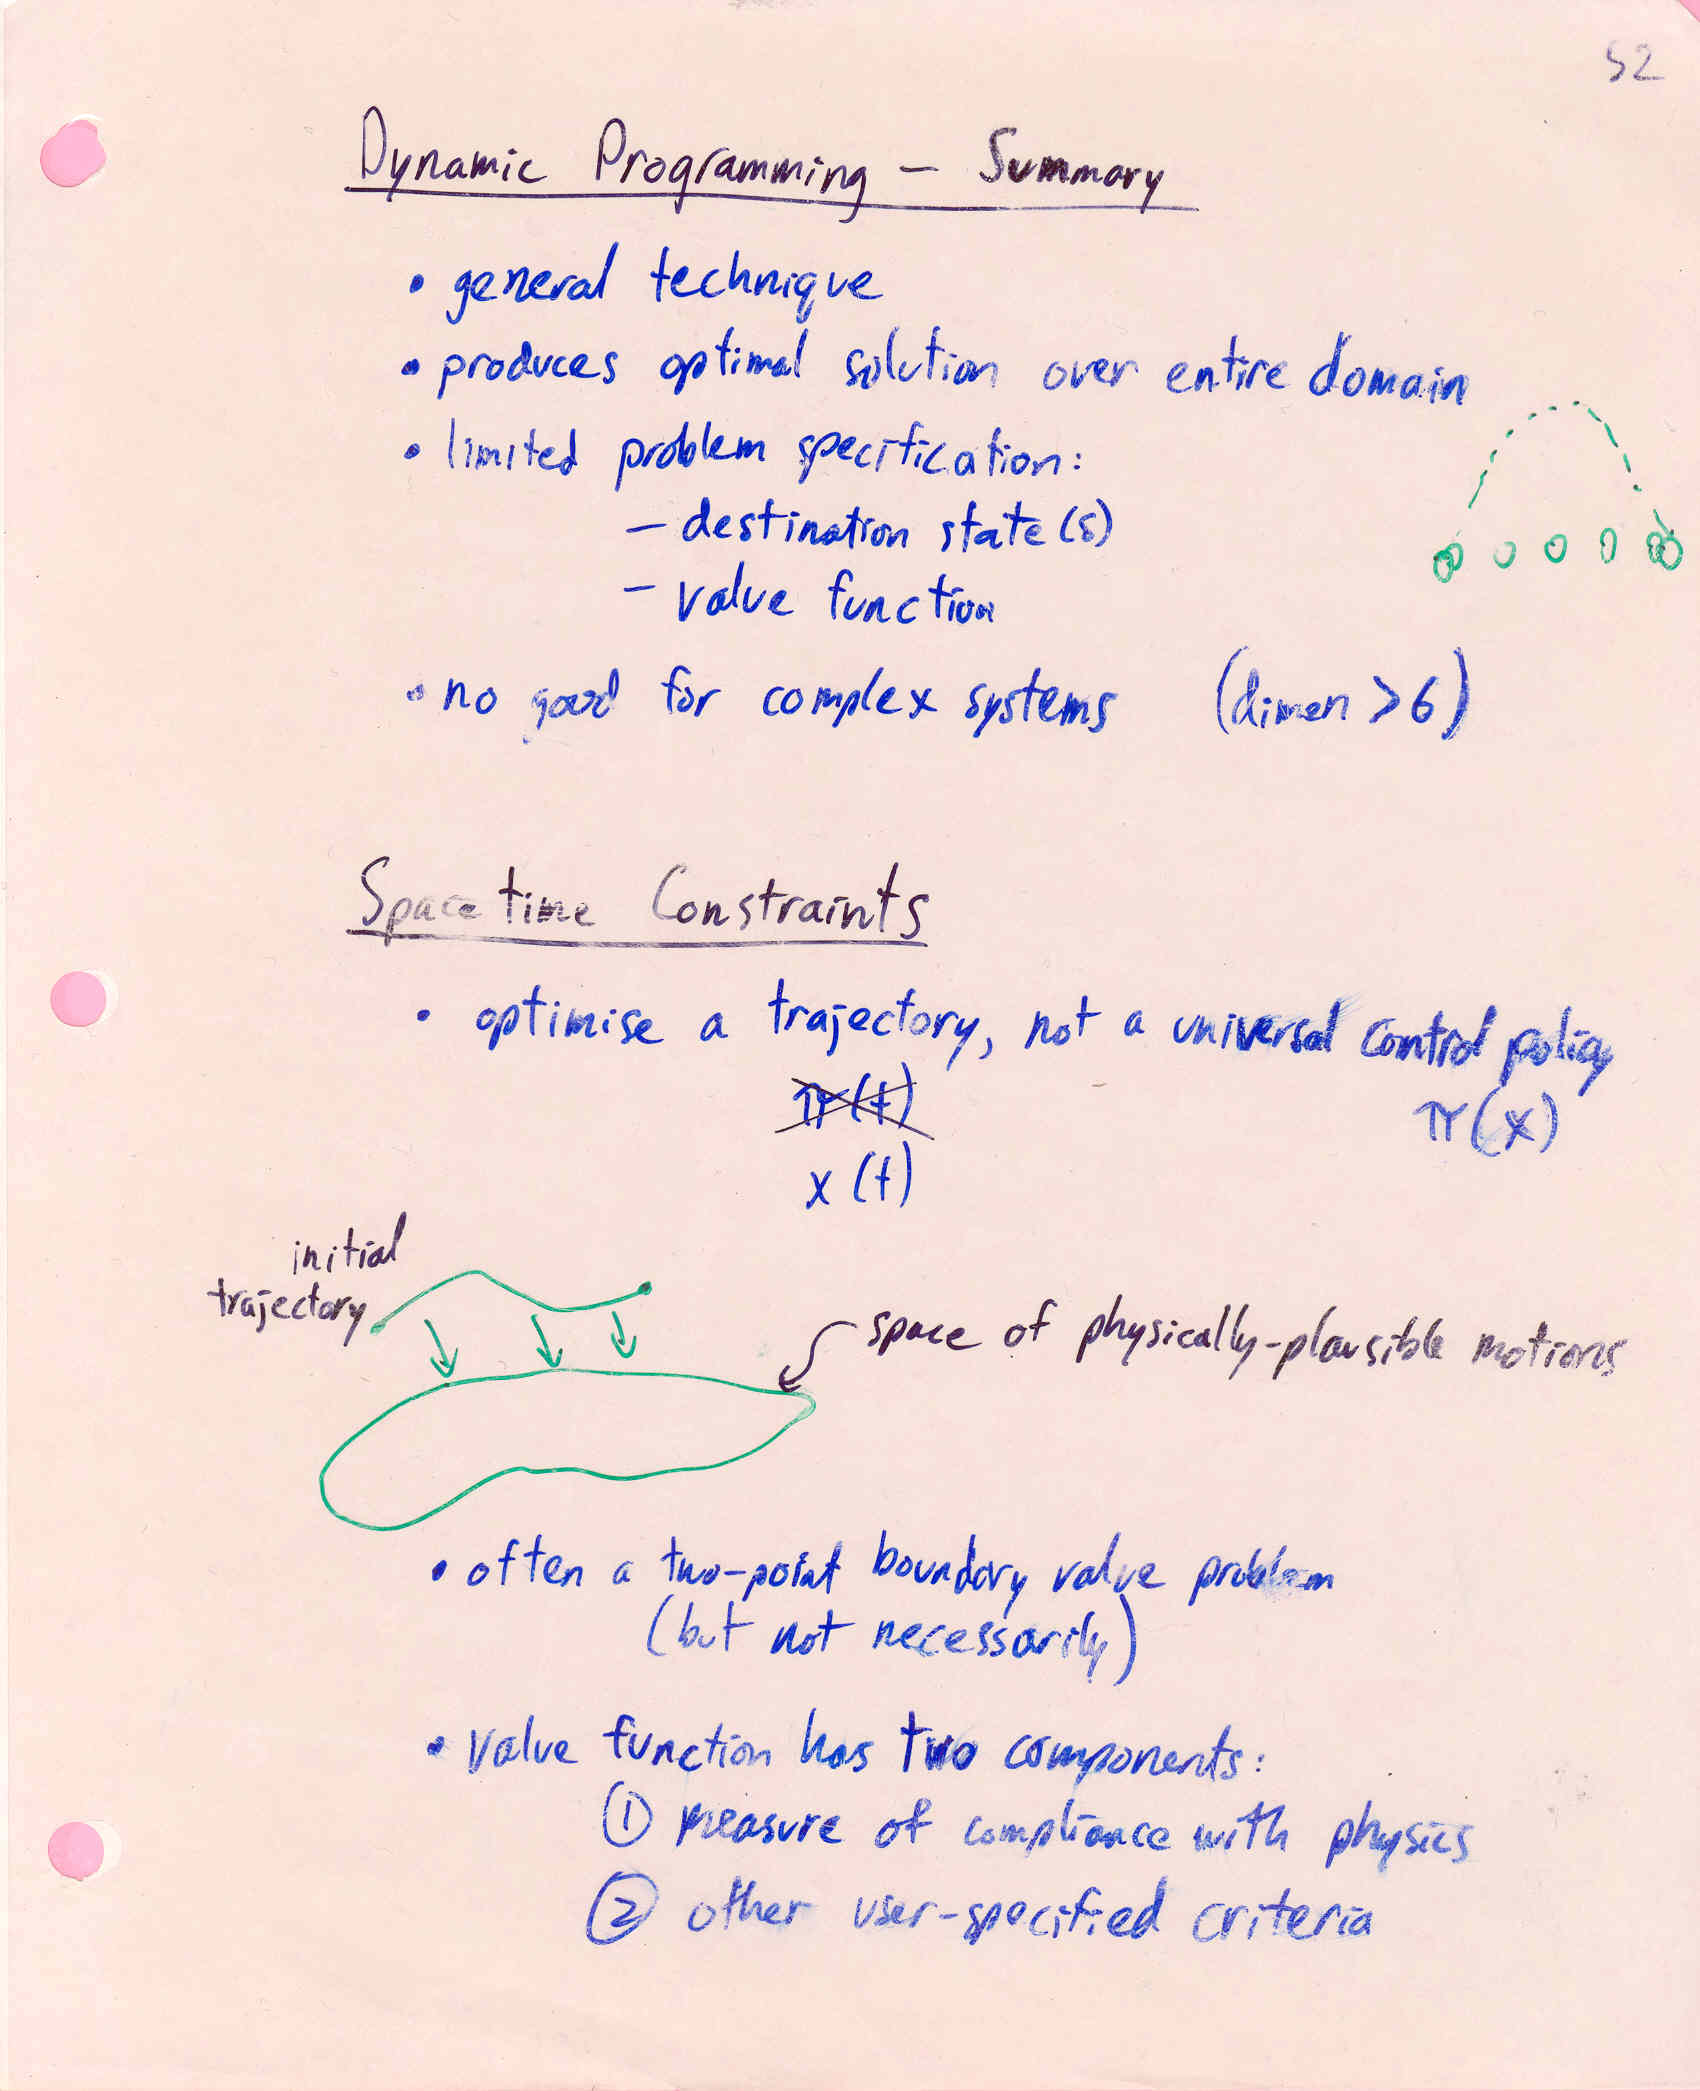 52
Dynamic Programming – Summary
• general technique
• produces optimal solution over entire domain
• limited problem specification:
– destination state(s)
– value function
• no good for complex systems (dimen > 6)
Spacetime Constraints
• optimise a trajectory, not a universal control policy
π(t) π(x)
x(t)
initial
trajectory
space of physically-plausible motions
• often a two-point boundary value problem
(but not necessarily)
• value function has two components:
① measure of compliance with physics
② other user-specified criteria